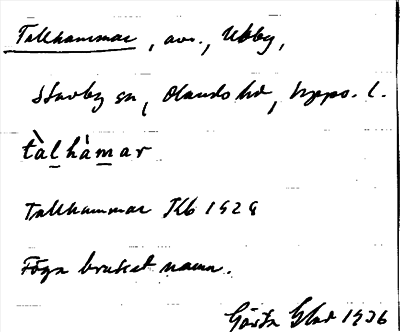 Tallhammar, avs., Ubby,
Stavby sn, Olands hd, Upps. l.
tàlhàmar
Tallhammar Jkb 1929
Föga brukat namn.
Gösta Glad 1936